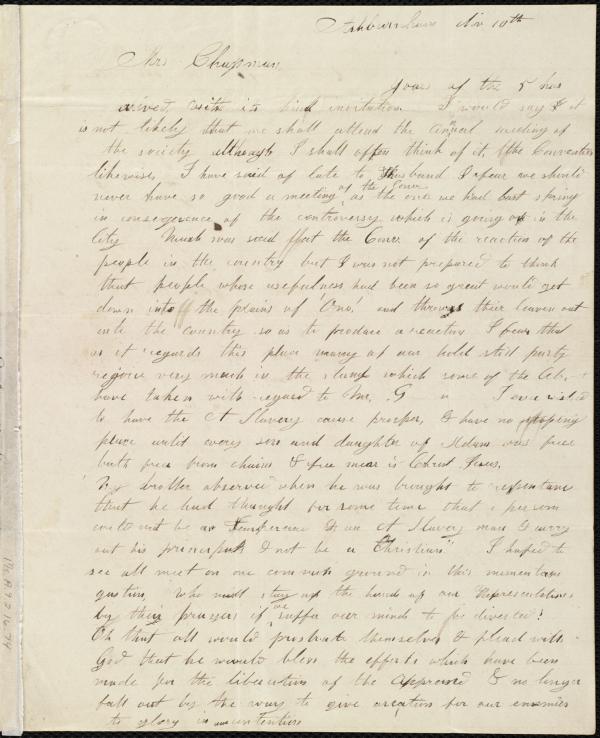 Ashburnham Nov 10th
Mrs Chapman
Yours of the 5 has
arived, with its kind invitation. I would say & it
is not likely that we shall attend the annual meeting of
the society although I shall often think of it, & the Convention
likewise. I have said of late to Husband I fear we should
never have so good a meeting of the Conv as the one we had last spring
in consequence of the controversy which is going on in the
City Much was said at the Conv. of the reaction of the
people in the country but I was not prepared to think
that people whose usefulness had been so great would get
down into the plains of 'Ono' and throw their leaven out
into the country so as to produce a reaction I fear that
as it regards this place many of our hold still party
rejoice very much in the stand which some of the Ab.
have taken with regard to Mr. G I ever wished
to have the A Slavery cause prosper, & have no stoping
place until every son and daughter of Adam was free
both free from chains & free men in Christ Jesus.
My brother observed when he was brought to repentance
that he had thought for some time that a person
could not be a Temperence & an A Slavery man & carry
out his principals & not be a Christian" I hoped to
see all meet on one common ground in this momentous
question, Who must stay up the hands of our Representatives
by their prayers if we suffer our minds to be diverted?
Oh that all would prostrate themselves & plead with
God that he would bless the efforts which have been
made for the liberation of the oppressed & no longer
fall out by the way to give occasion for our enemies
to glory in our contentions
Ms. A.9.2.14.74